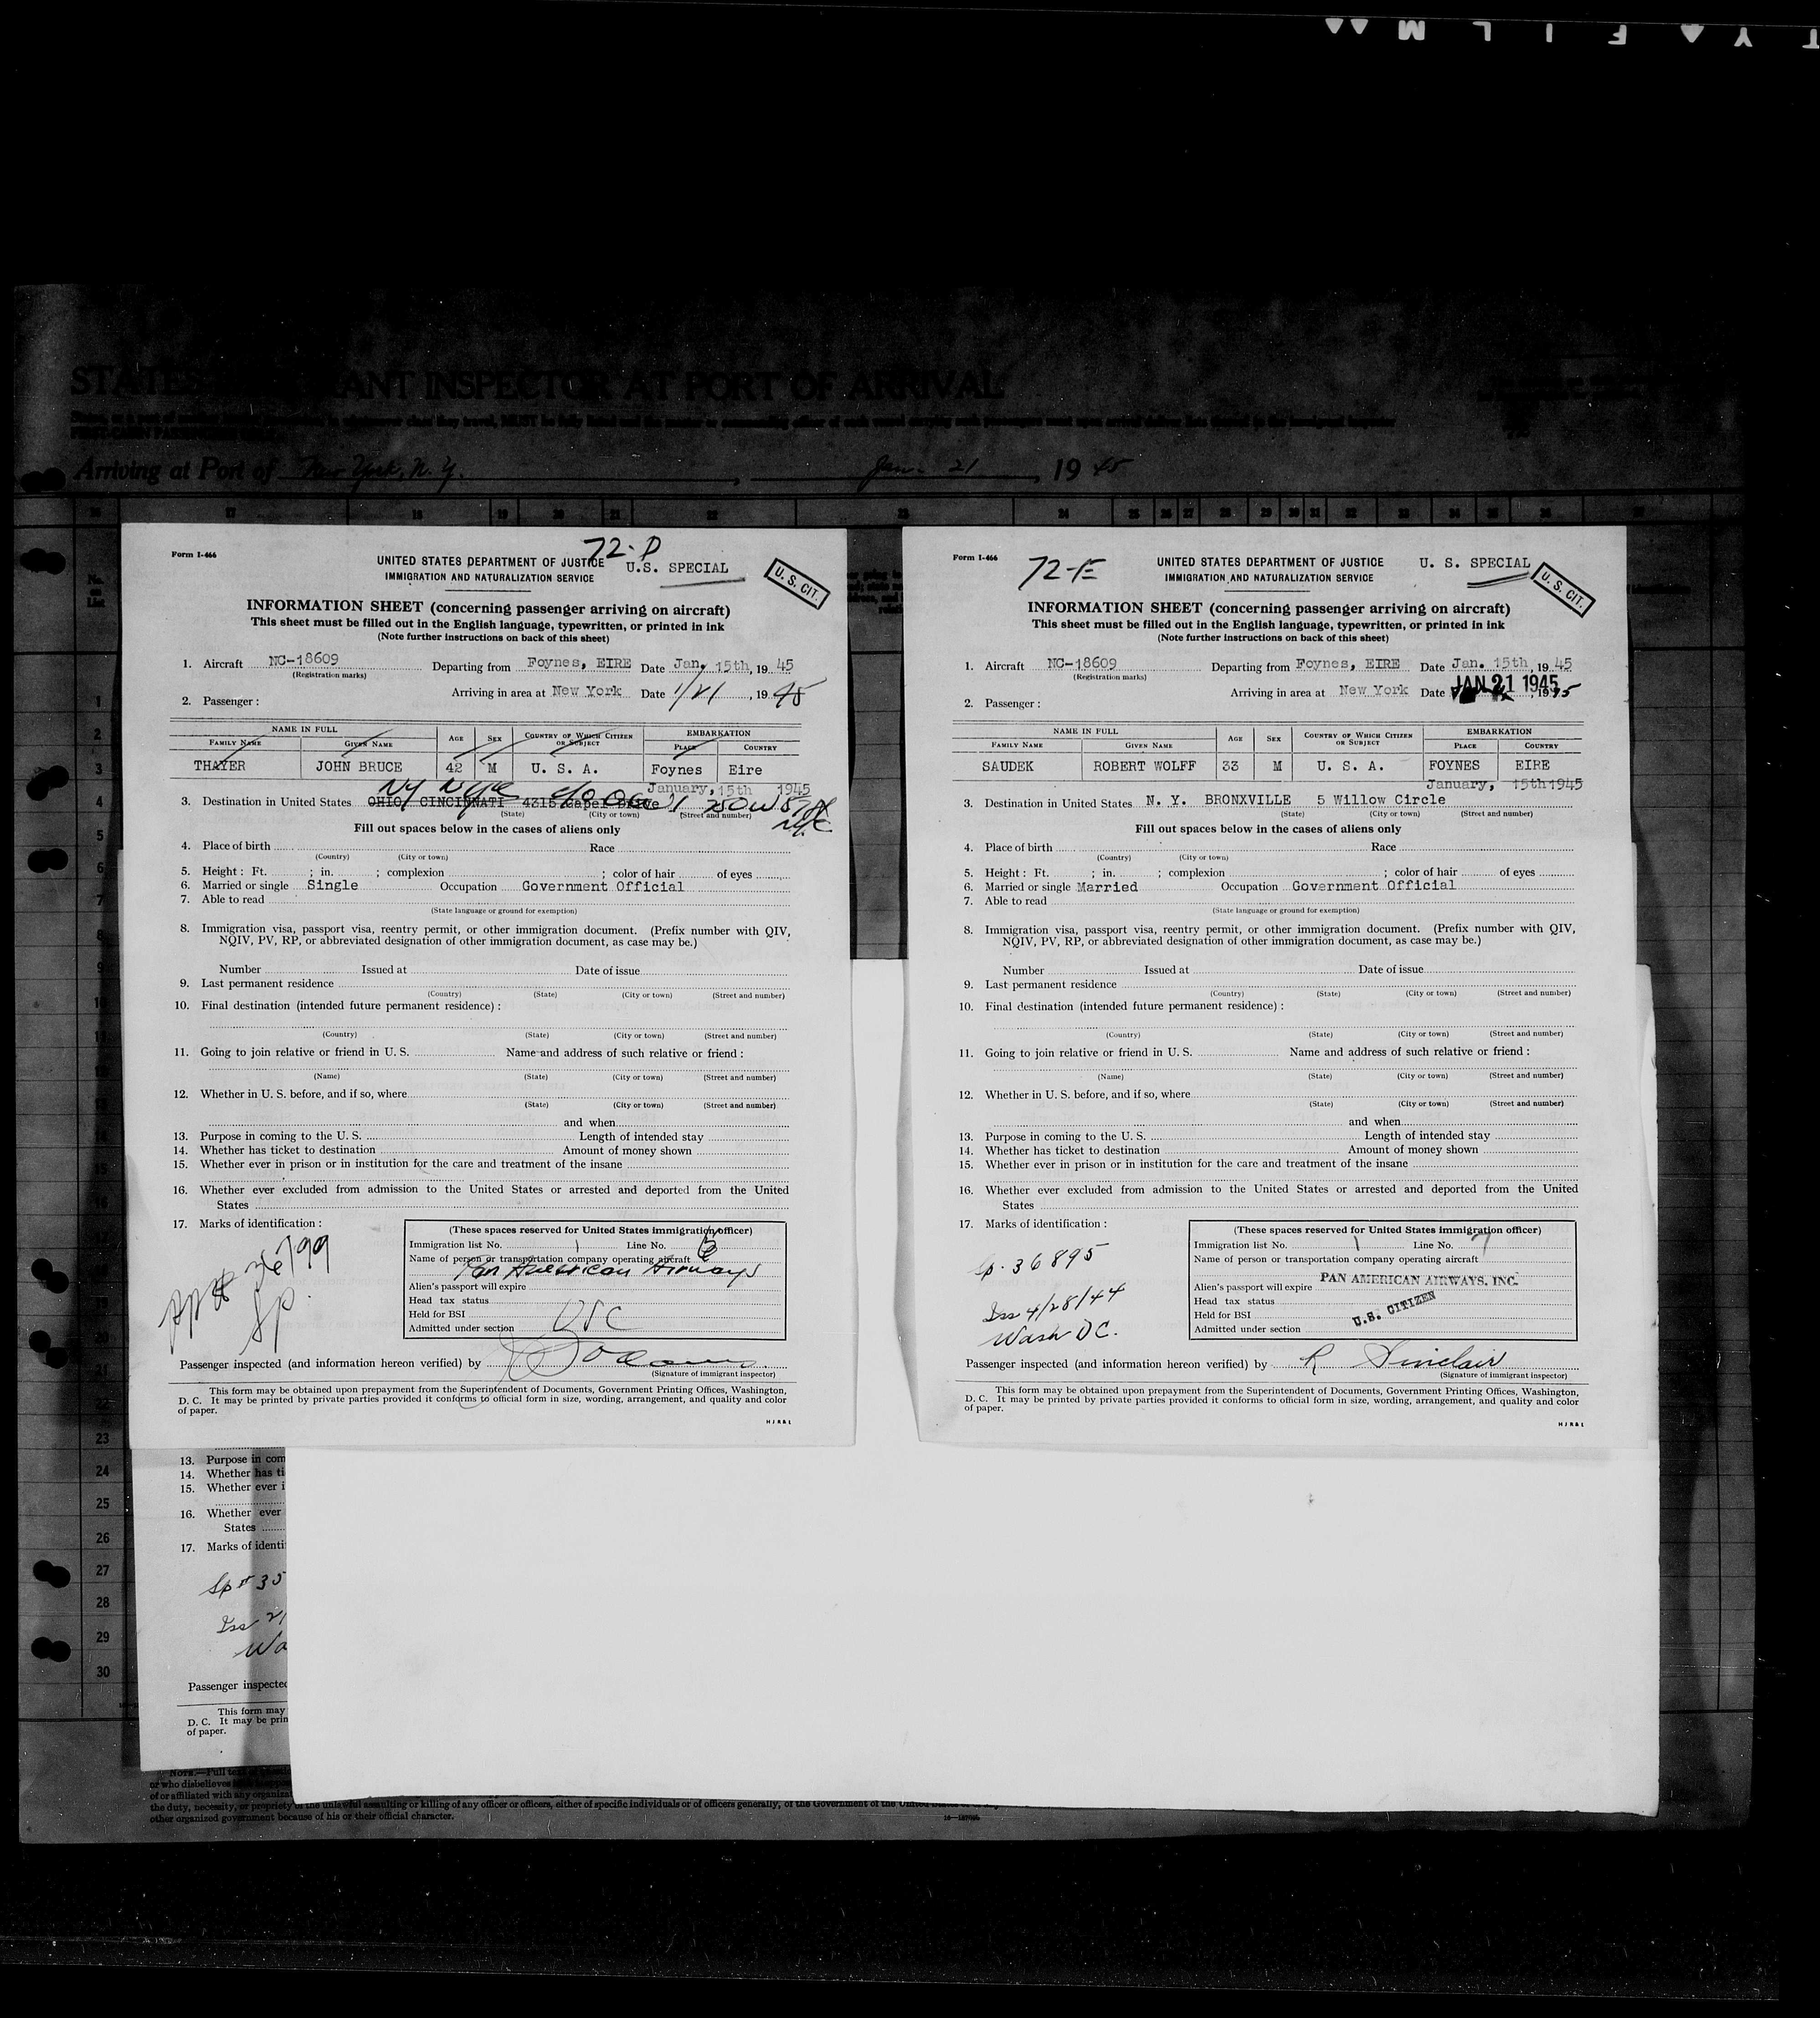 Y ▲ F I L M ▲▲
STATES IMMIGRANT INSPECTOR AT PORT OF ARRIVAL
Arriving at Port of New York, N. Y., Jan. 21, 1945
Form I-466
72-D
UNITED STATES DEPARTMENT OF JUSTICE
U.S. SPECIAL
U. S. CIT.
IMMIGRATION AND NATURALIZATION SERVICE
INFORMATION SHEET (concerning passenger arriving on aircraft)
This sheet must be filled out in the English language, typewritten, or printed in ink
(Note further instructions on back of this sheet)
1. Aircraft NC-18609 Departing from Foynes, EIRE Date Jan. 15th, 1945
(Registration marks)
Arriving in area at New York Date 1/21, 1945
2. Passenger :
NAME IN FULL AGE SEX COUNTRY OF WHICH CITIZEN OR SUBJECT EMBARKATION
FAMILY NAME GIVEN NAME PLACE COUNTRY
THAYER JOHN BRUCE 42 M U. S. A. Foynes Eire
January, 15th 1945
NY NYC c/o 250 W 57
NYC
3. Destination in United States OHIO, CINCINNATI 4315 Drive
(State) (City or town) (Street and number)
Fill out spaces below in the cases of aliens only
4. Place of birth Race
(Country) (City or town)
5. Height : Ft. ; in. ; complexion ; color of hair of eyes
6. Married or single Single Occupation Government Official
7. Able to read
(State language or ground for exemption)
8. Immigration visa, passport visa, reentry permit, or other immigration document. (Prefix number with QIV,
NQIV, PV, RP, or abbreviated designation of other immigration document, as case may be.)
Number Issued at Date of issue
9. Last permanent residence
(Country) (State) (City or town) (Street and number)
10. Final destination (intended future permanent residence) :
(Country) (State) (City or town) (Street and number)
11. Going to join relative or friend in U. S. Name and address of such relative or friend :
(Name) (State) (City or town) (Street and number)
12. Whether in U. S. before, and if so, where
(State) (City or town) (Street and number)
and when
13. Purpose in coming to the U. S. Length of intended stay
14. Whether has ticket to destination Amount of money shown
15. Whether ever in prison or in institution for the care and treatment of the insane
16. Whether ever excluded from admission to the United States or arrested and deported from the United
States
17. Marks of identification :
Sp.
(These spaces reserved for United States immigration officer)
Immigration list No. 1 Line No. 6
Name of person or transportation company operating aircraft
Pan American Airways
Alien's passport will expire
Head tax status
Held for BSI
Admitted under section USC
Passenger inspected (and information hereon verified) by
(Signature of immigrant inspector)
This form may be obtained upon prepayment from the Superintendent of Documents, Government Printing Offices, Washington,
D. C. It may be printed by private parties provided it conforms to official form in size, wording, arrangement, and quality and color
of paper.
H J R & L
Form I-466
72-E
UNITED STATES DEPARTMENT OF JUSTICE
U. S. SPECIAL
U. S. CIT.
IMMIGRATION AND NATURALIZATION SERVICE
INFORMATION SHEET (concerning passenger arriving on aircraft)
This sheet must be filled out in the English language, typewritten, or printed in ink
(Note further instructions on back of this sheet)
1. Aircraft NC-18609 Departing from Foynes, EIRE Date Jan. 15th, 1945
(Registration marks)
JAN 21 1945
Arriving in area at New York Date , 1945
2. Passenger :
NAME IN FULL AGE SEX COUNTRY OF WHICH CITIZEN OR SUBJECT EMBARKATION
FAMILY NAME GIVEN NAME PLACE COUNTRY
SAUDEK ROBERT WOLFF 33 M U. S. A. FOYNES EIRE
January, 15th 1945
3. Destination in United States N. Y. BRONXVILLE 5 Willow Circle
(State) (City or town) (Street and number)
Fill out spaces below in the cases of aliens only
4. Place of birth Race
(Country) (City or town)
5. Height : Ft. ; in. ; complexion ; color of hair of eyes
6. Married or single Married Occupation Government Official
7. Able to read
(State language or ground for exemption)
8. Immigration visa, passport visa, reentry permit, or other immigration document. (Prefix number with QIV,
NQIV, PV, RP, or abbreviated designation of other immigration document, as case may be.)
Number Issued at Date of issue
9. Last permanent residence
(Country) (State) (City or town) (Street and number)
10. Final destination (intended future permanent residence) :
(Country) (State) (City or town) (Street and number)
11. Going to join relative or friend in U. S. Name and address of such relative or friend :
(Name) (State) (City or town) (Street and number)
12. Whether in U. S. before, and if so, where
(State) (City or town) (Street and number)
and when
13. Purpose in coming to the U. S. Length of intended stay
14. Whether has ticket to destination Amount of money shown
15. Whether ever in prison or in institution for the care and treatment of the insane
16. Whether ever excluded from admission to the United States or arrested and deported from the United
States
17. Marks of identification :
Sp. 36895
Iss 4/28/44
Wash DC.
(These spaces reserved for United States immigration officer)
Immigration list No. 1 Line No. 7
Name of person or transportation company operating aircraft
PAN AMERICAN AIRWAYS, INC.
Alien's passport will expire
Head tax status
U.S. CITIZEN
Held for BSI
Admitted under section
Passenger inspected (and information hereon verified) by R Sinclair
(Signature of immigrant inspector)
This form may be obtained upon prepayment from the Superintendent of Documents, Government Printing Offices, Washington,
D. C. It may be printed by private parties provided it conforms to official form in size, wording, arrangement, and quality and color
of paper.
H J R & L
13. Purpose in com
14. Whether has ti
15. Whether ever i
16. Whether ever
States
17. Marks of identi
Sp # 35
Iss 2/
Wa
Passenger inspected
This form may
D. C. It may be prin
of paper.
or who disbelieves
of or affiliated with any organizat
the duty, necessity, or propriety of the unlawful assaulting or killing of any officer or officers, either of specific individuals or of officers generally, of the Government of the United
other organized government because of his or their official character.